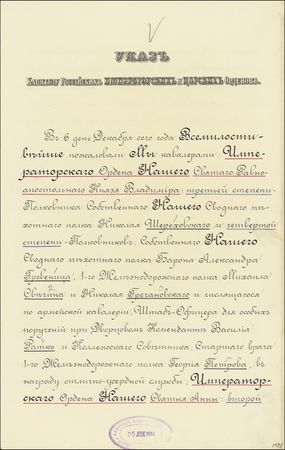 УКАЗЪ
Капитулу Российскихъ ИМПЕРАТОРСКИХЪ и ЦАРСКИХЪ Орденовъ.
Въ 6 день Декабря сего года Всемилости-
вѣйше пожаловали Мы кавалерами: Импе-
раторскаго Ордена Нашего Святаго Равно-
апостольнаго Князя Владиміра: третьей степени-
Полковника Собственнаго Нашего Своднаго пѣ-
хотнаго полка Николая и четвертой
степени - Полковниковъ: Собственнаго Нашего
Своднаго пѣхотнаго полка Барона Александра
Гревеница, 1-го Желѣзнодорожнаго полка Михаила
и Николая и числящагося
по армейской кавалеріи, Штабъ-Офицера для особыхъ
порученій при Дворцовомъ Комендантѣ Василія
и Коллежскаго Совѣтника, Старшаго врача
1-го Желѣзнодорожнаго полка Георгія Петрова, въ
награду отлично-усердной службы; Император-
скаго Ордена Нашего Святыя Анны: второй